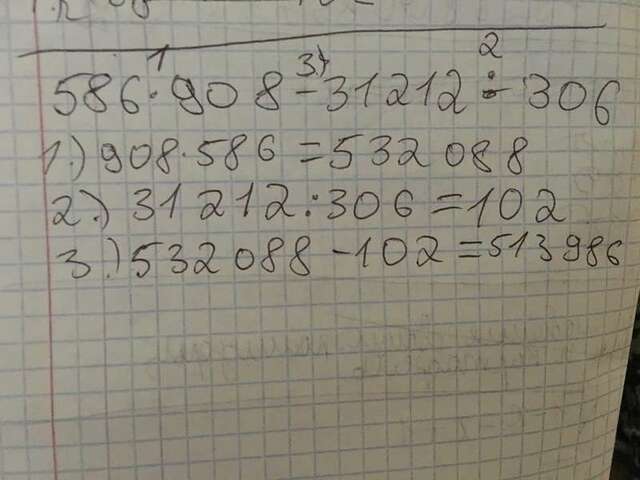 1 3) 2
586 · 908 - 31212 ÷ 306
1.) 908 · 586 = 532 088
2.) 31212 : 306 = 102
3.) 532 088 - 102 = 513 986